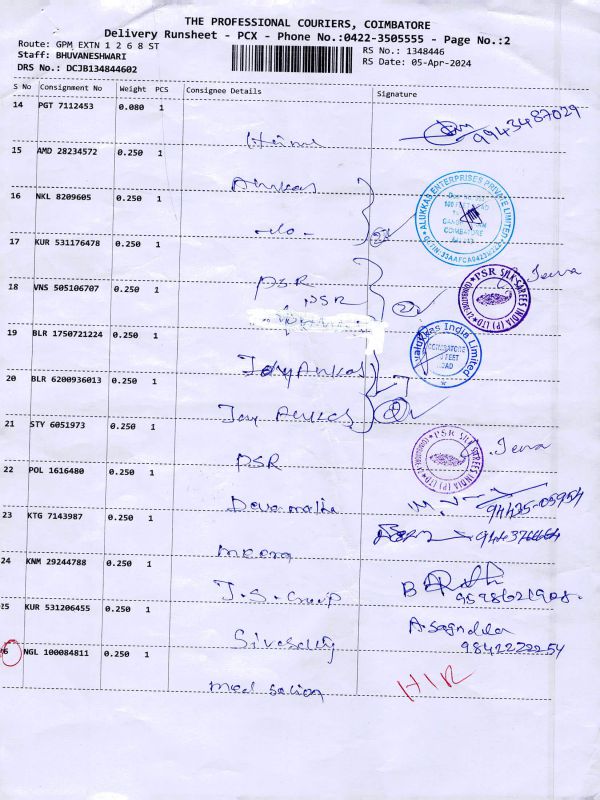 THE PROFESSIONAL COURIERS, COIMBATORE
Delivery Runsheet - PCX - Phone No.:0422-3505555 - Page No.:2
Route: GPM_EXTN 1 2 6 8 ST
RS No.: 1348446
Staff: BHUVANESHWARI
RS Date: 05-Apr-2024
DRS No.: DCJB134844602
S No Consignment No Weight PCS Consignee Details Signature
14 PGT 7112453 0.080 1
9943487029
15 AMD 28234572 0.250 1
Alukkas
16 NKL 8209605 0.250 1
-do-
ALUKKAS ENTERPRISES PRIVATE LIMITED
COIMBATORE
17 KUR 531176478 0.250 1
PSR
18 VNS 505106707 0.250 1
PSR
PSR SILK SAREES INDIA (P) LTD
19 BLR 1750721224 0.250 1
JoyAlukkas
India Limited
COIMBATORE
ROAD
20 BLR 6200936013 0.250 1
Joy Alukkas
21 STY 6051973 0.250 1
PSR
PSR SILK SAREES INDIA (P) LTD
22 POL 1616480 0.250 1
94435-05954
23 KTG 7143987 0.250 1
meera
24 KNM 29244788 0.250 1
J.S. Group
25 KUR 531206455 0.250 1
9842222254
26 NGL 100084811 0.250 1
HIR